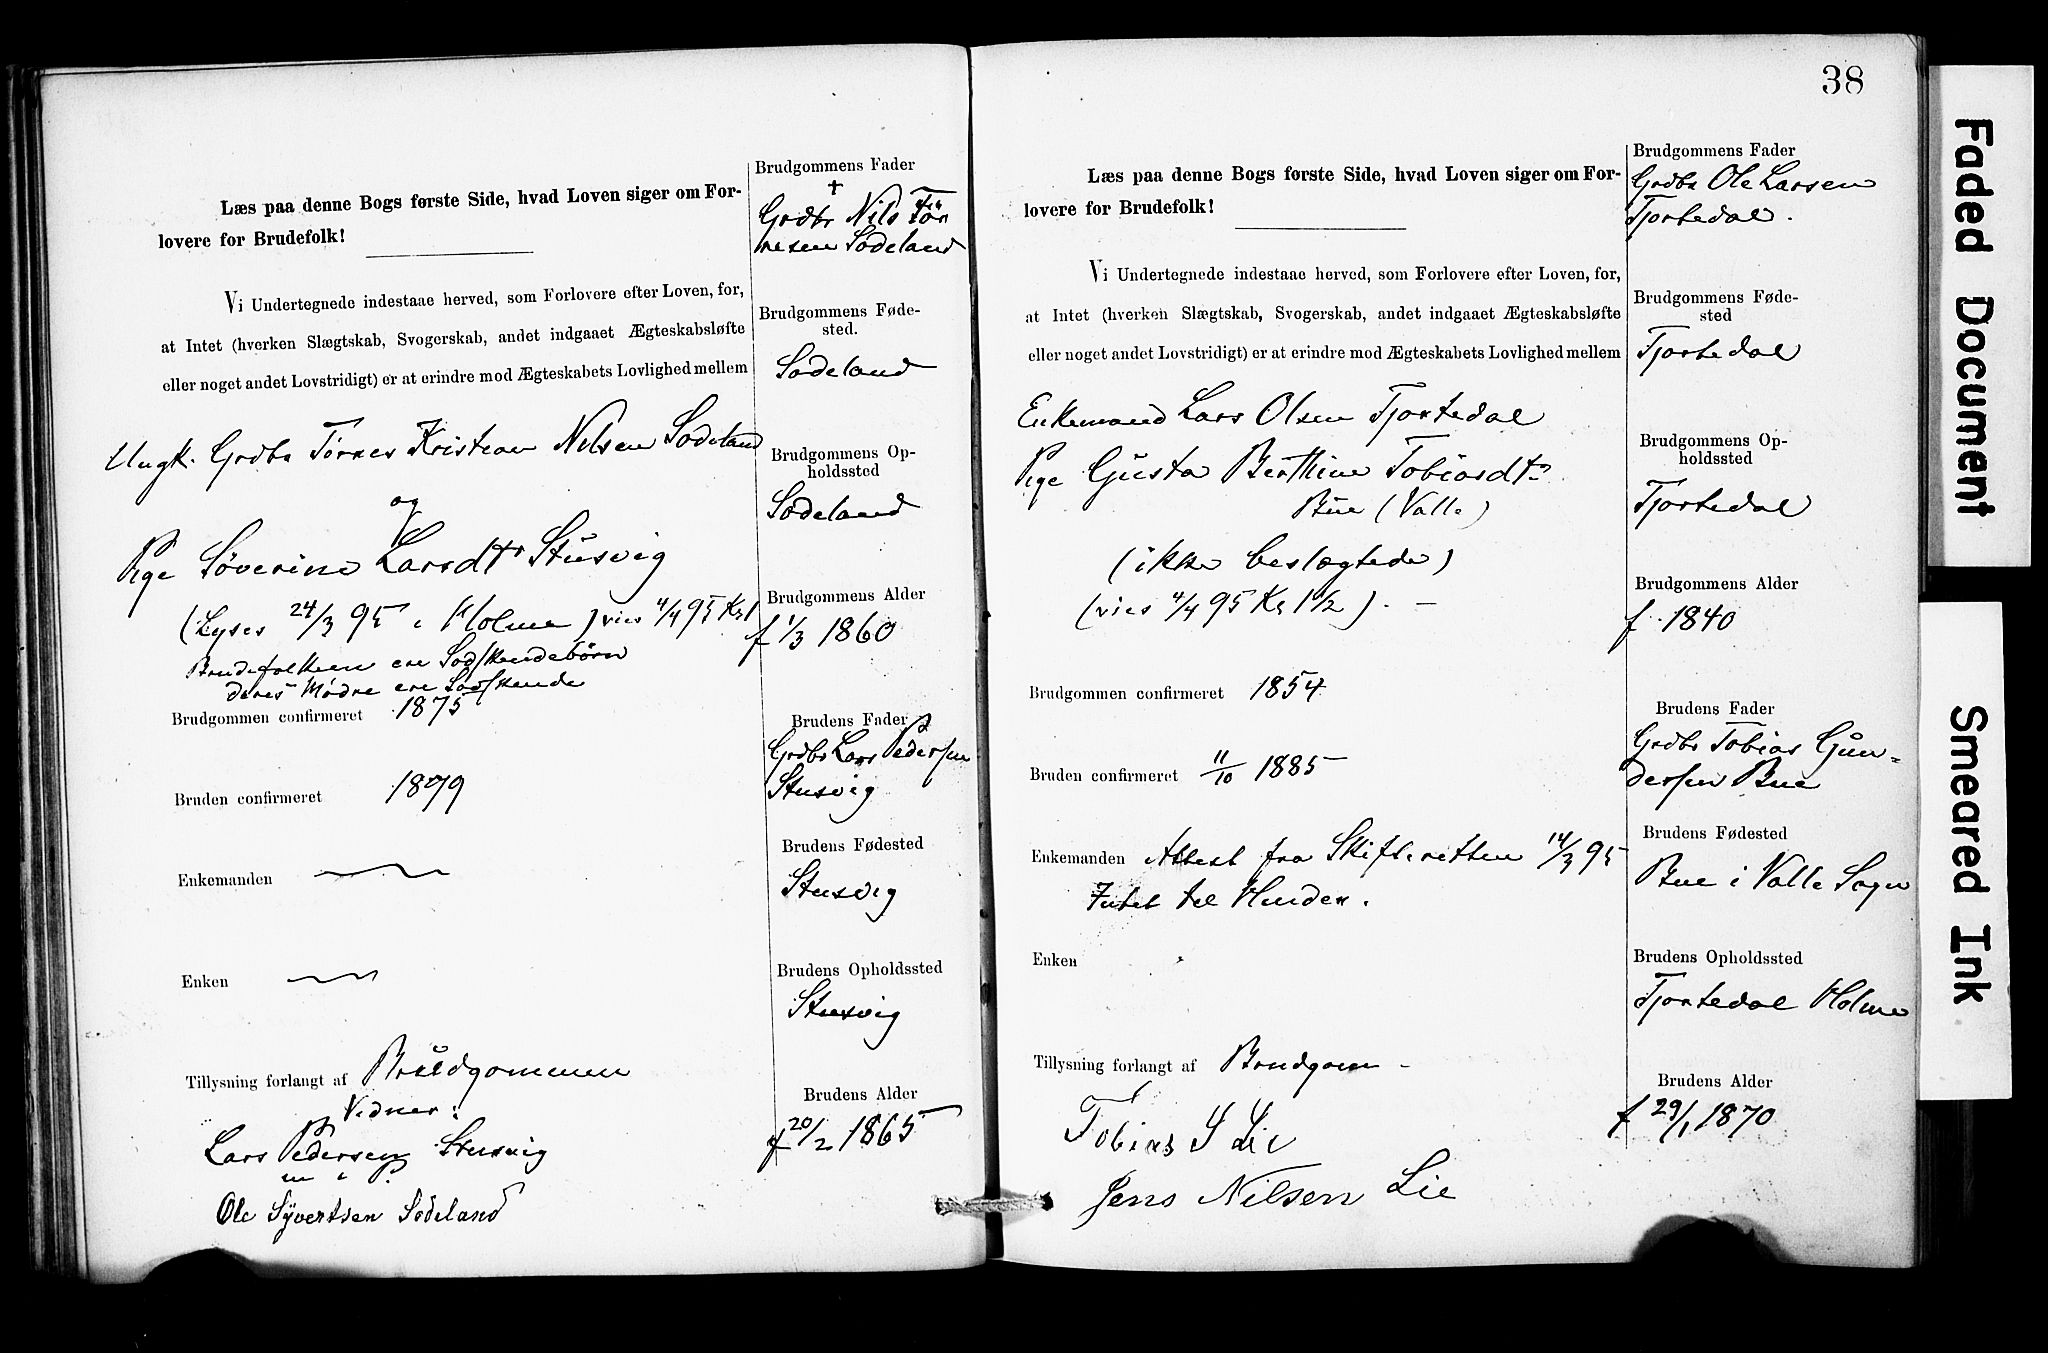 Læs paa denne Bogs første Side, hvad Loven siger om For-
lovere for Brudefolk!
Vi Undertegnede indestaae herved, som Forlovere efter Loven, for,
at Intet (hverken Slægtskab, Svogerskab, andet indgaaet Ægteskabsløfte
eller noget andet Lovstridigt) er at erindre mod Ægteskabets Lovlighed mellem
Ungk. Grdbr Tørres Kristian Nilsen Sodeland
og
Pige Søverine Larsdtr Stusvig
(Lyses 24/3 95 i Holme) vies 4/4 95 Kl 1
Brudefolkene ere Sødskendebörn
deres Mødre ere Sødskende
Brudgommen confirmeret 1875
Bruden confirmeret 1879
Enkemanden
Enken
Tillysning forlangt af Brudgommen
Vidner:
Lars Pedersen Stusvig
m i P.
Ole Syvertsen Sodeland
Brudgommens Fader
+
Grdbr Nils Tör
resen Sodeland
Brudgommens Føde-
sted.
Sodeland
Brudgommens Op-
holdssted
Sodeland
Brudgommens Alder
f 1/3 1860
Brudens Fader
Grdbr Lars Pedersen
Stusvig
Brudens Fødested
Stusvig
Brudens Opholdssted
Stusvig
Brudens Alder
f 20/2 1865
38
Læs paa denne Bogs første Side, hvad Loven siger om For-
lovere for Brudefolk!
Vi Undertegnede indestaae herved, som Forlovere efter Loven, for,
at Intet (hverken Slægtskab, Svogerskab, andet indgaaet Ægteskabsløfte
eller noget andet Lovstridigt) er at erindre mod Ægteskabets Lovlighed mellem
Enkemand Lars Olsen Tjortedal
Pige Gusta Berthine Tobiasdtr
Bue (Valle)
(ikke beslægtede)
(vies 4/4 95 Kl 1 1/2). —
Brudgommen confirmeret 1854
Bruden confirmeret 11/10 1885
Enkemanden Attest fra Skifteretten 14/3 95
Intet til Hinder.
Enken
Tillysning forlangt af Brudgom –
Tobias S Lie
Jens Nilsen Lie
Brudgommens Fader
Grdbr Ole Larsen
Tjortedal.
Brudgommens Føde-
sted
Tjortedal
Brudgommens Op-
holdssted
Tjortedal
Brudgommens Alder
f. 1840
Brudens Fader
Grdbr Tobias Gun=
dersen Bue
Brudens Fødested
Bue i Valle Sogn
Brudens Opholdssted
Tjortedal Holme
Brudens Alder
f 29/1 1870
Faded Document
Smeared Ink